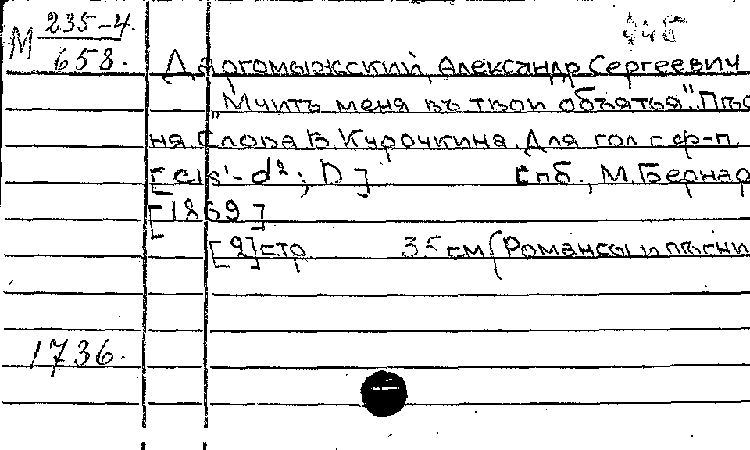 М 235-4.
658.
Даргомыжский, Александр Сергеевич
"Мчит меня въ твои объятья". Пѣс
ня. Слова В. Курочкина. Для гол. с ф-п.
[cis¹-d²; D] Спб., М. Бернар
[1869]
[2] стр. 35 см (Романсы и пѣсни
1736.